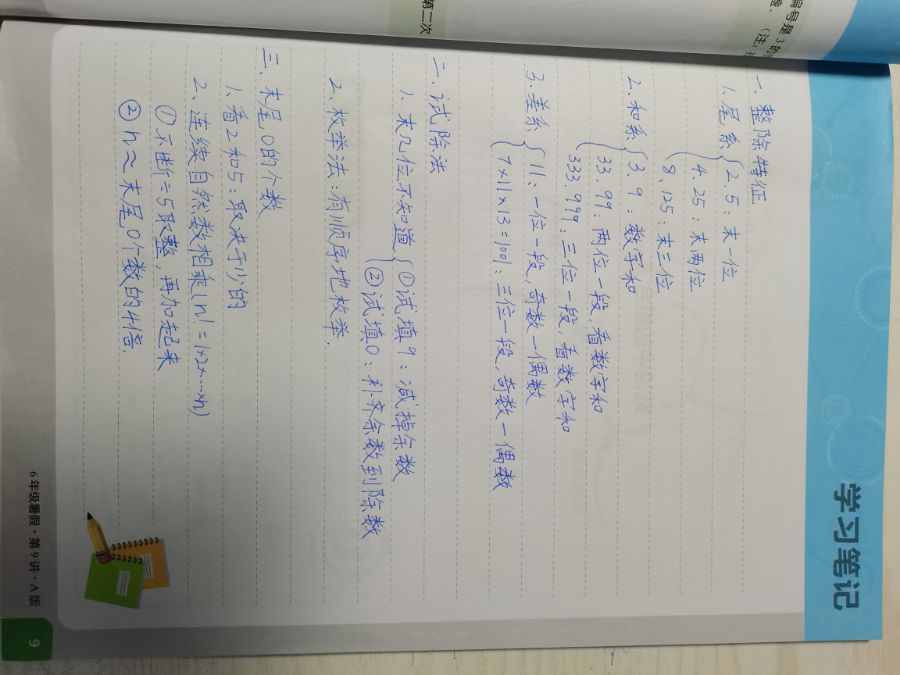 编号是3的
学习笔记
一、整除特征
1、尾系{2.5:末一位
4.25:末两位
8.125:末三位
2、和系{3.9:数字和
33.99:两位一段,看数字和
333.999:三位一段,看数字和
3、差系{11:一位一段,奇数-偶数
7×11×13=1001:三位一段,奇数-偶数
二、试除法
1、末几位不知道{①试填9:减掉余数
②试填0:补齐余数到除数
2、枚举法:有顺序地枚举.
三、末尾0的个数
1、看2和5:取决于少的
2、连续自然数相乘(n!=1×2×……×n)
①不断÷5取整,再加起来
②n≈末尾0个数的4倍.
第二次
6年级暑假·第9讲·A版
9